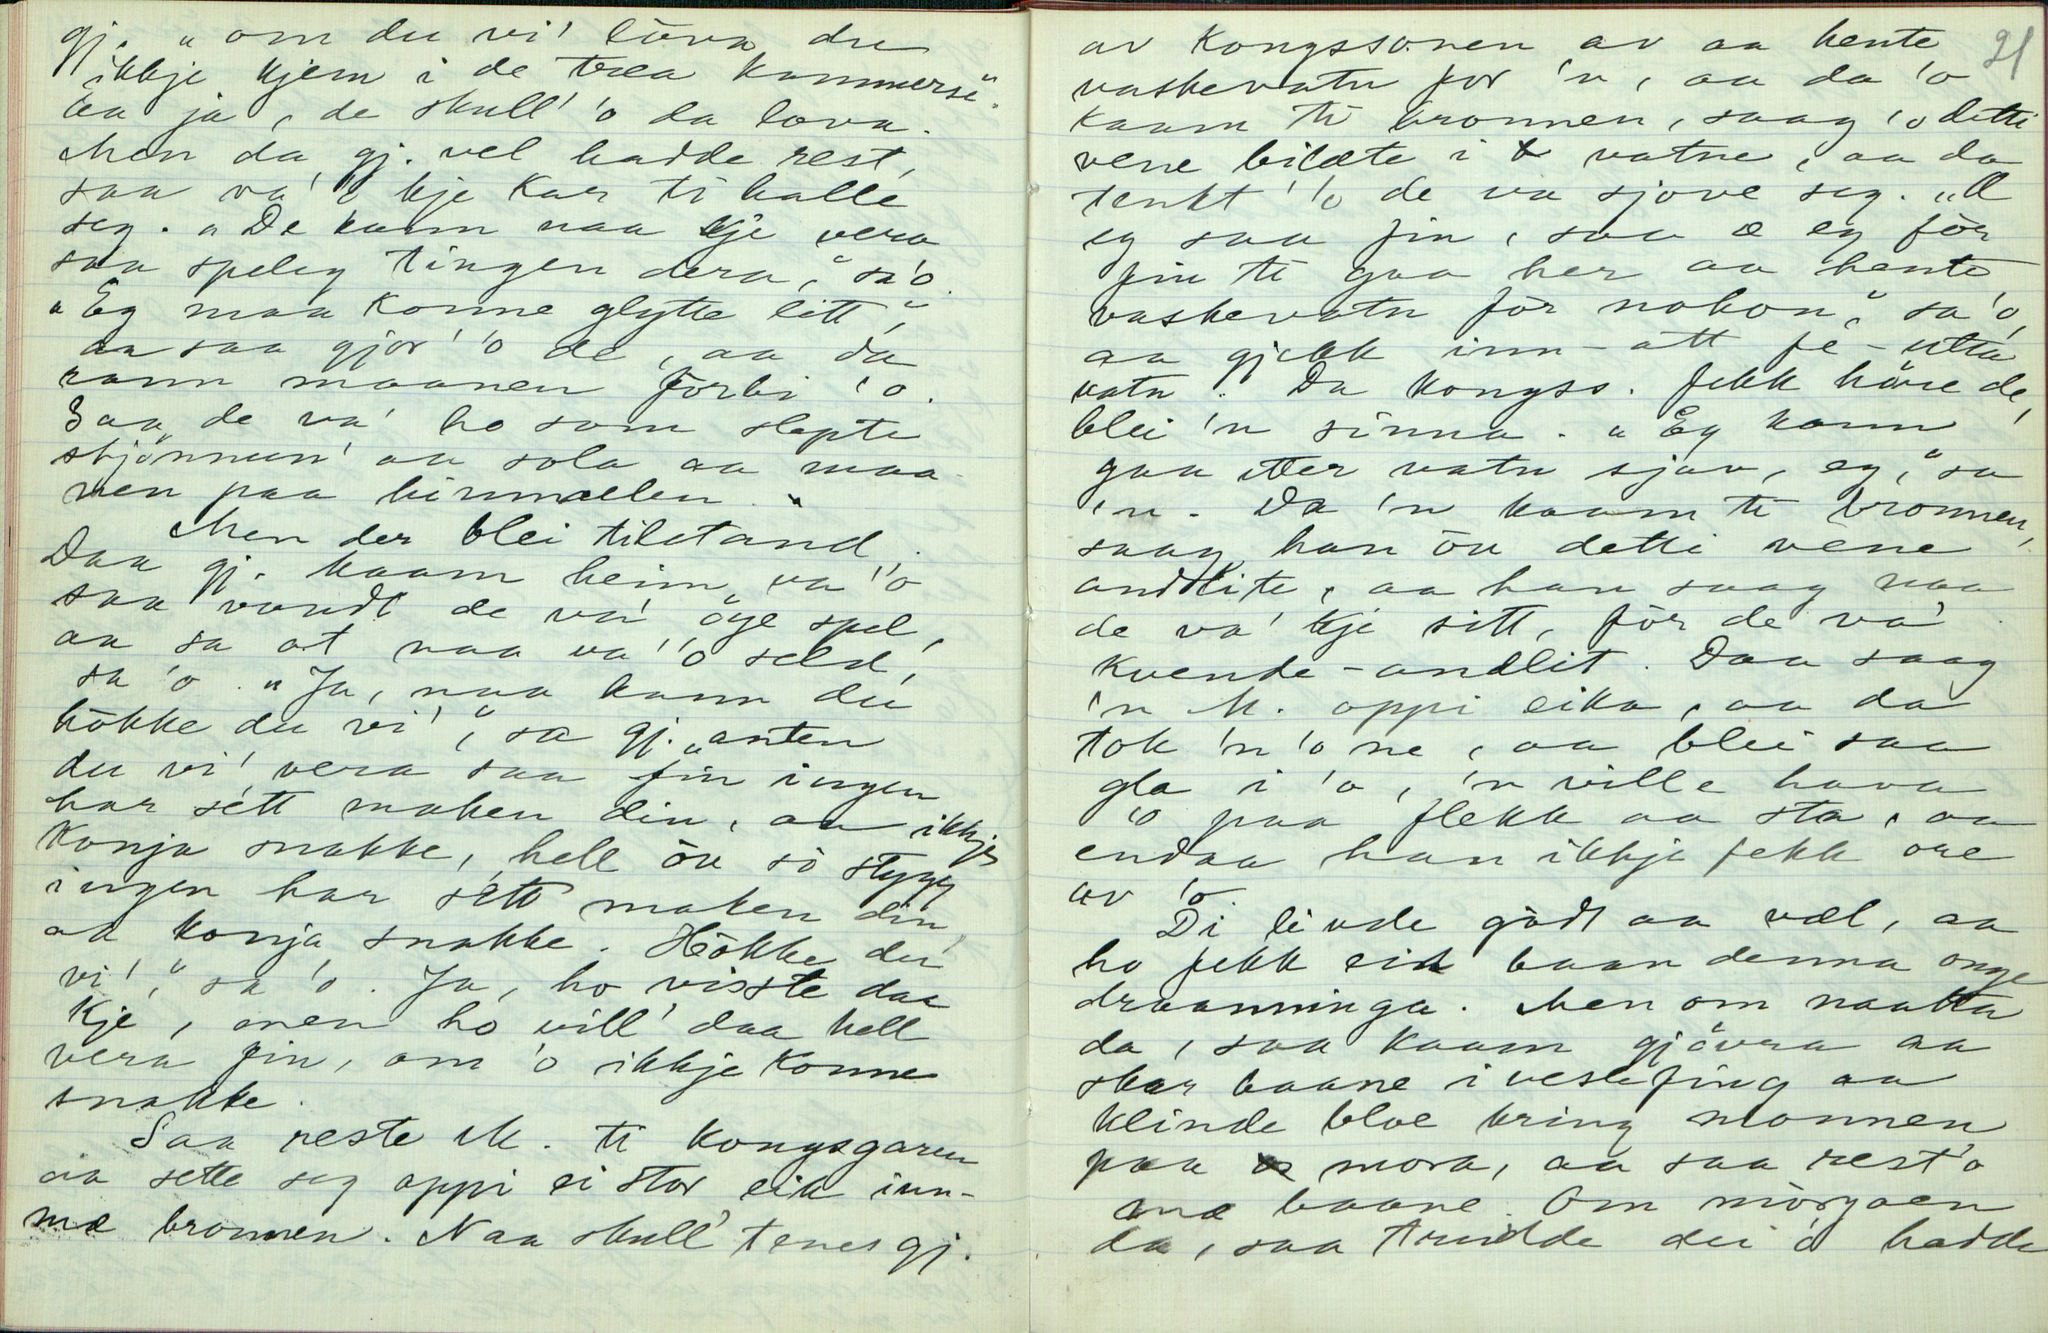 gj. „om du vi' lòva du
ikkje kjem i de træa kammerse".
Aa ja, de skull' 'o da lova.
Men da gj. vel hadde rest,
saa va' 'i kje kar ti halle
seg. „De kann naa kje vera
saa speleg tingen dera," sa'o.
„Eg maa konne glytte litt,"
aa saa gjor' 'o de, aa da
rann maanen forbi 'o.
Saa de va' ho som slepte
stjönnun' aa sola aa maa-
nen paa himmælen."
Men der blei tilstand.
Daa gj. kaam heim, va' 'o
saa vondt de va' öge spel,
aa sa at naa va' 'o seld,
sa 'o. „Ja, naa kann du
hökke du vi'," sa gj. „anten
du vi' vera saa fin ingen
har sétt maken din, aa ikkje
konja snakke, hell öu så stygg
ingen har sétt maken din,
aa konja snakke. Hökke du
vi'," sa 'o. Ja, ho visste daa
kje, men ho vill' daa hell
vera fin, om 'o ikkje konne
snakke.
Saa reste M. ti kongsgaren
aa sette seg oppi ei stor eik inn-
mæ bronnen. Naa skull' tenes gj.
21
av kongssonen av aa hente
vaskevatn for 'n, aa da 'o
kaam ti bronnen, saag 'o detti
vene bilæte i vatne, aa da
tenkt' 'o de va sjove seg. „Æ
eg saa fin, saa æ eg för
fin ti gaa her aa hente
vaskevatn för nokon," sa 'o,
aa gjekk inn-att fe-utta
vatn. Da kongss. fekk häre de,
blei 'n sinna. „Eg kann
gaa etter vatn sjav, eg," sa
'n. Da 'n kaam ti bronnen,
saag han öu detti vene
andlite, aa han saag naa
de va' kje sitt, för de va'
kvende-andlit. Daa saag
'n M. oppi eika, aa da
tok 'n 'o ne, aa blei saa
gla i 'o, 'n ville hava
'o paa flekk aa sta, aa
endaa han ikkje fekk ore
av 'o.
Di livde gòdt aa væl, aa
ho fekk eit baan denna onge
draanninga. Men om naatta
da, saa kaam gjövra aa
skar baane i veslefing aa
klinde bloe kring monnen
paa mora, aa saa rest' 'o
mæ baane. Om mòrgaen
da, saa trudde dei 'o hadde